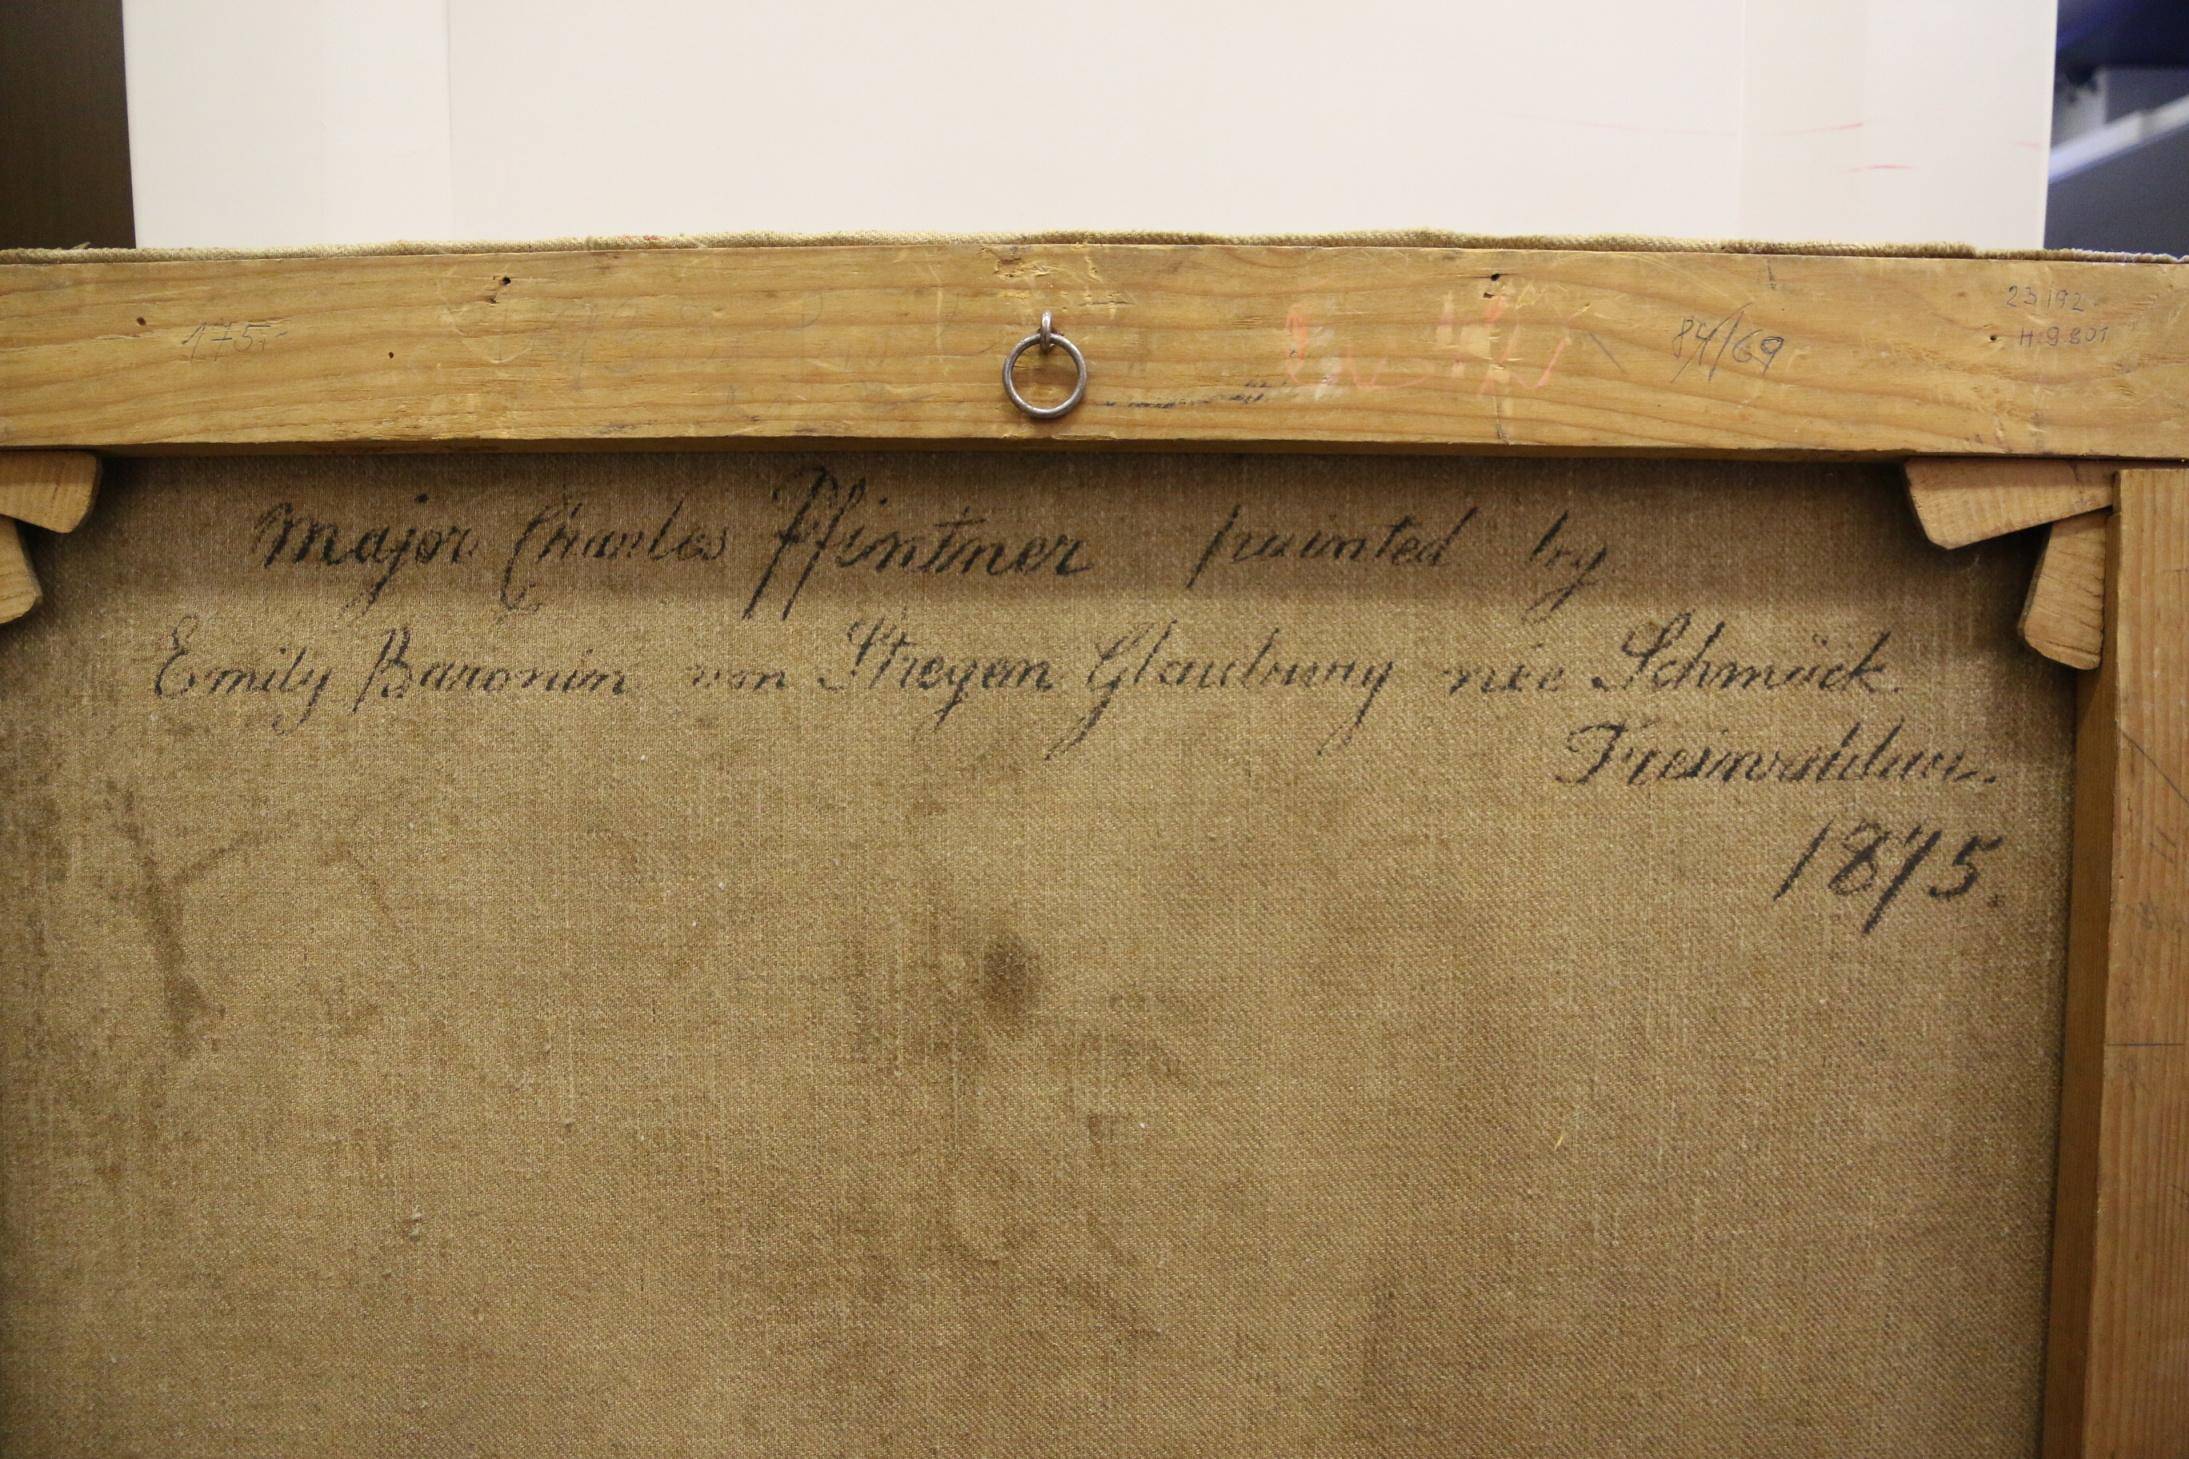 175,-
84/69
23192
H.9801
Major Charles Pfintner painted by
Emily Baronin von Stregen Glauburg née Schmück.
Freiwaldau.
1875.